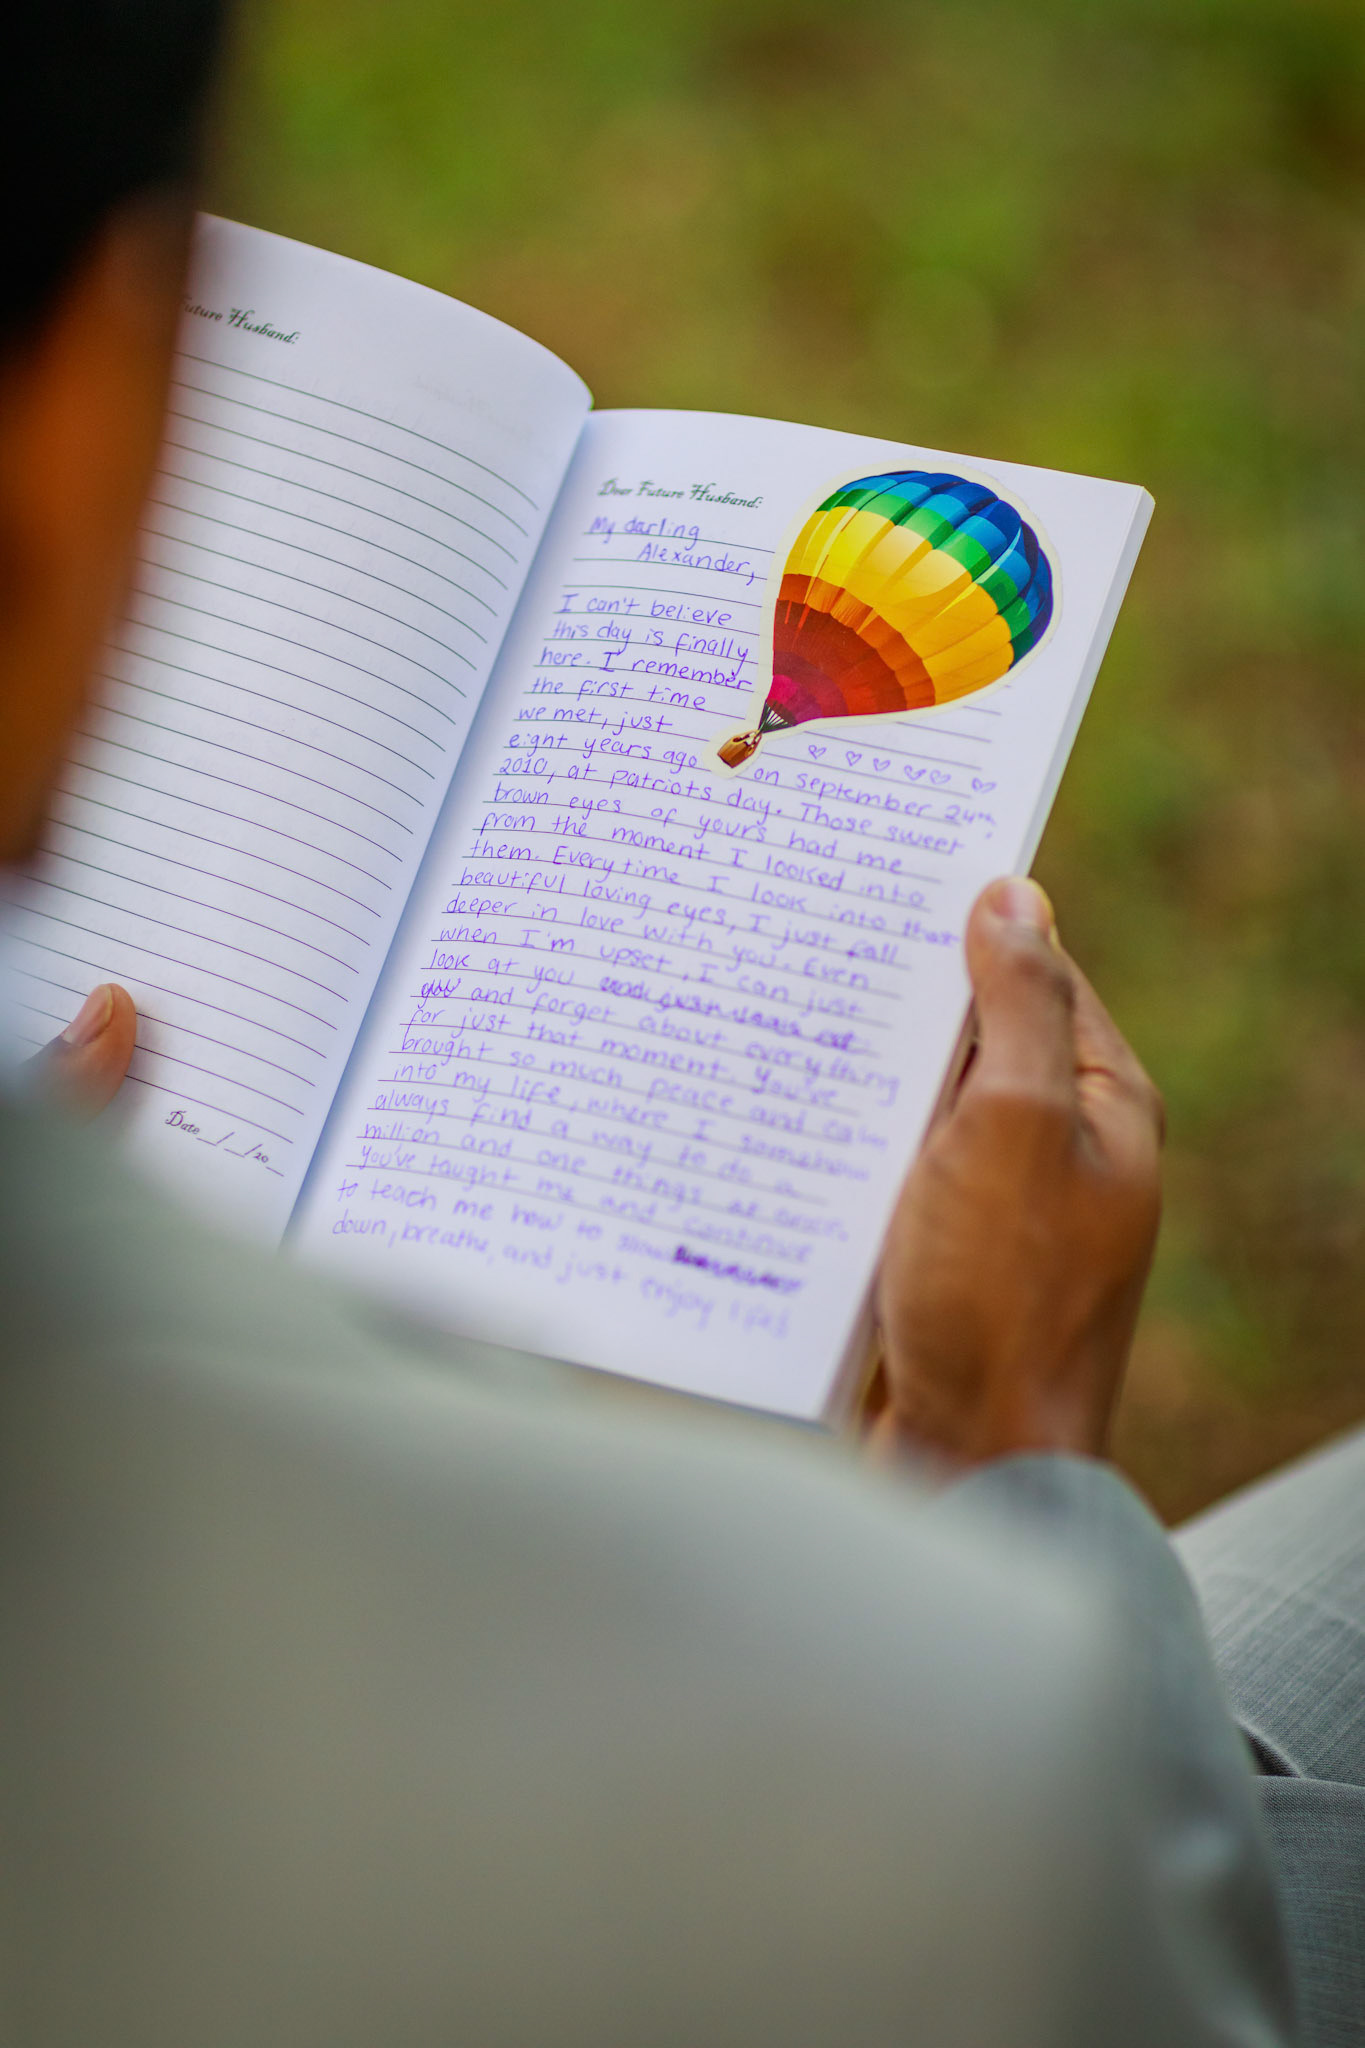 Future Husband:
Date__/__/20__
Dear Future Husband:
My darling
Alexander,
I can't believe
this day is finally
here. I remember
the first time
we met, just
eight years ago on september 24th,
2010, at patriots day. Those sweet
brown eyes of yours had me
from the moment I looked into
them. Every time I look into those
beautiful loving eyes, I just fall
deeper in love with you. Even
when I'm upset, I can just
look at you
and forget about everything
for just that moment. You've
brought so much peace and calm
into my life, where I somehow
always find a way to do a
million and one things at once.
You've taught me and continue
to teach me how to slow
down, breathe, and just enjoy life!